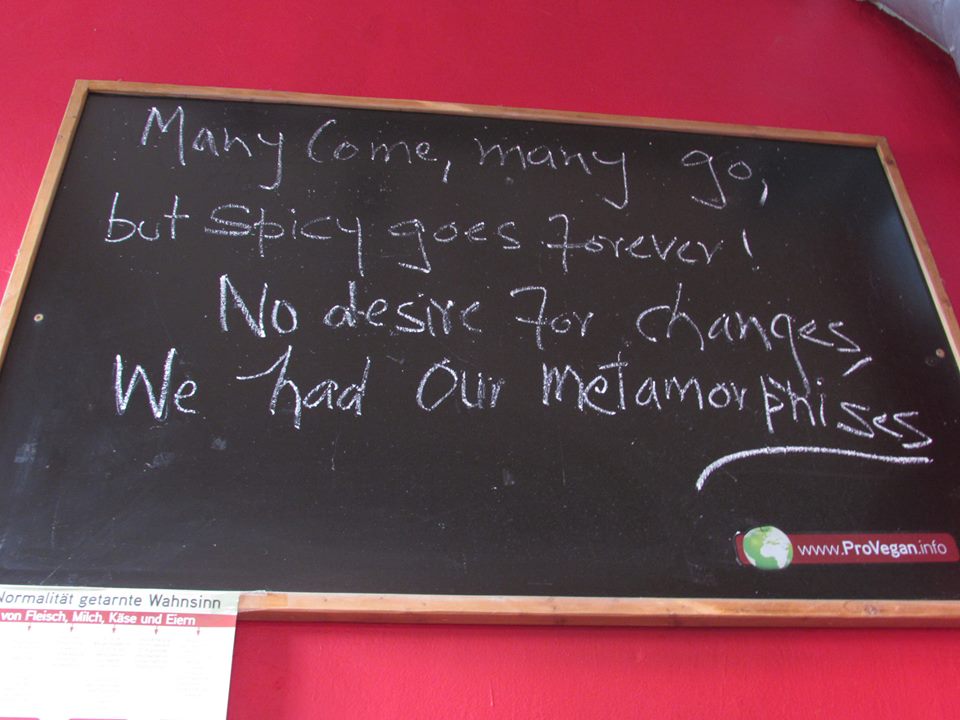 Many Come, many go,
but spicy goes forever!
No desire for changes,
We had our metamorphises
www.ProVegan.info
Normalität getarnte Wahnsinn
von Fleisch, Milch, Käse und Eiern